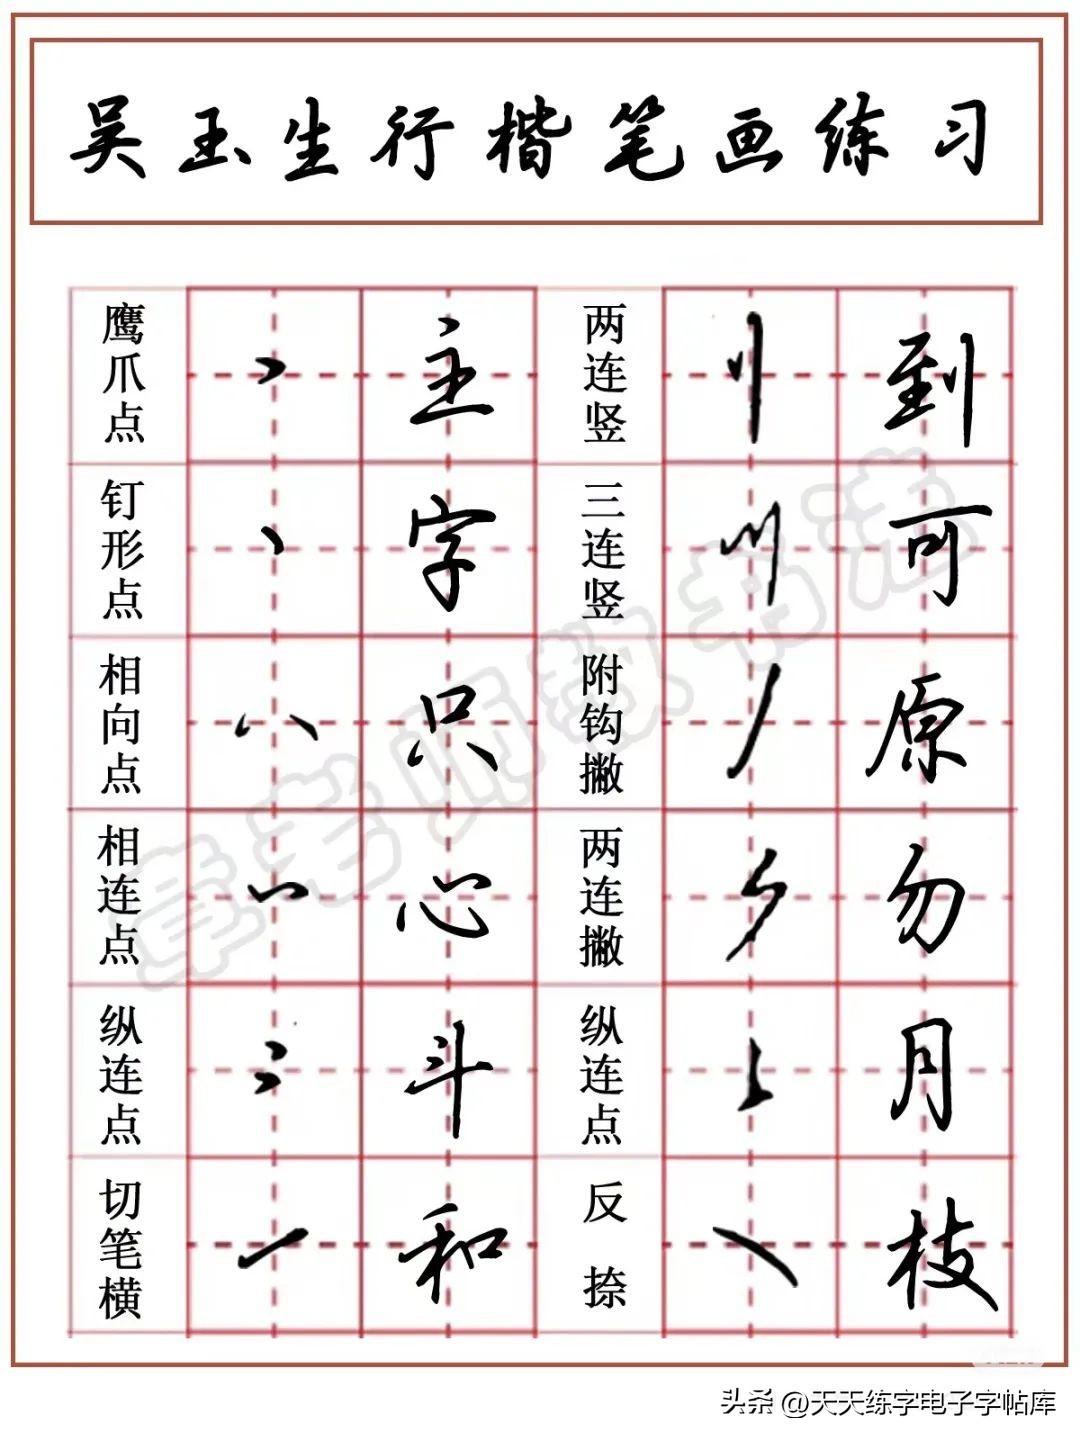 吴玉生行楷笔画练习
鹰爪点 丶 主 两连竖 刂 到
钉形点 丶 字 三连竖 可
相向点 八 只 附钩撇 丿 原
相连点 心 两连撇 勿
纵连点 冫 斗 纵连点 月
切笔横 一 和 反捺 ㇏ 枝
章老师教书法
头条 @天天练字电子字帖库